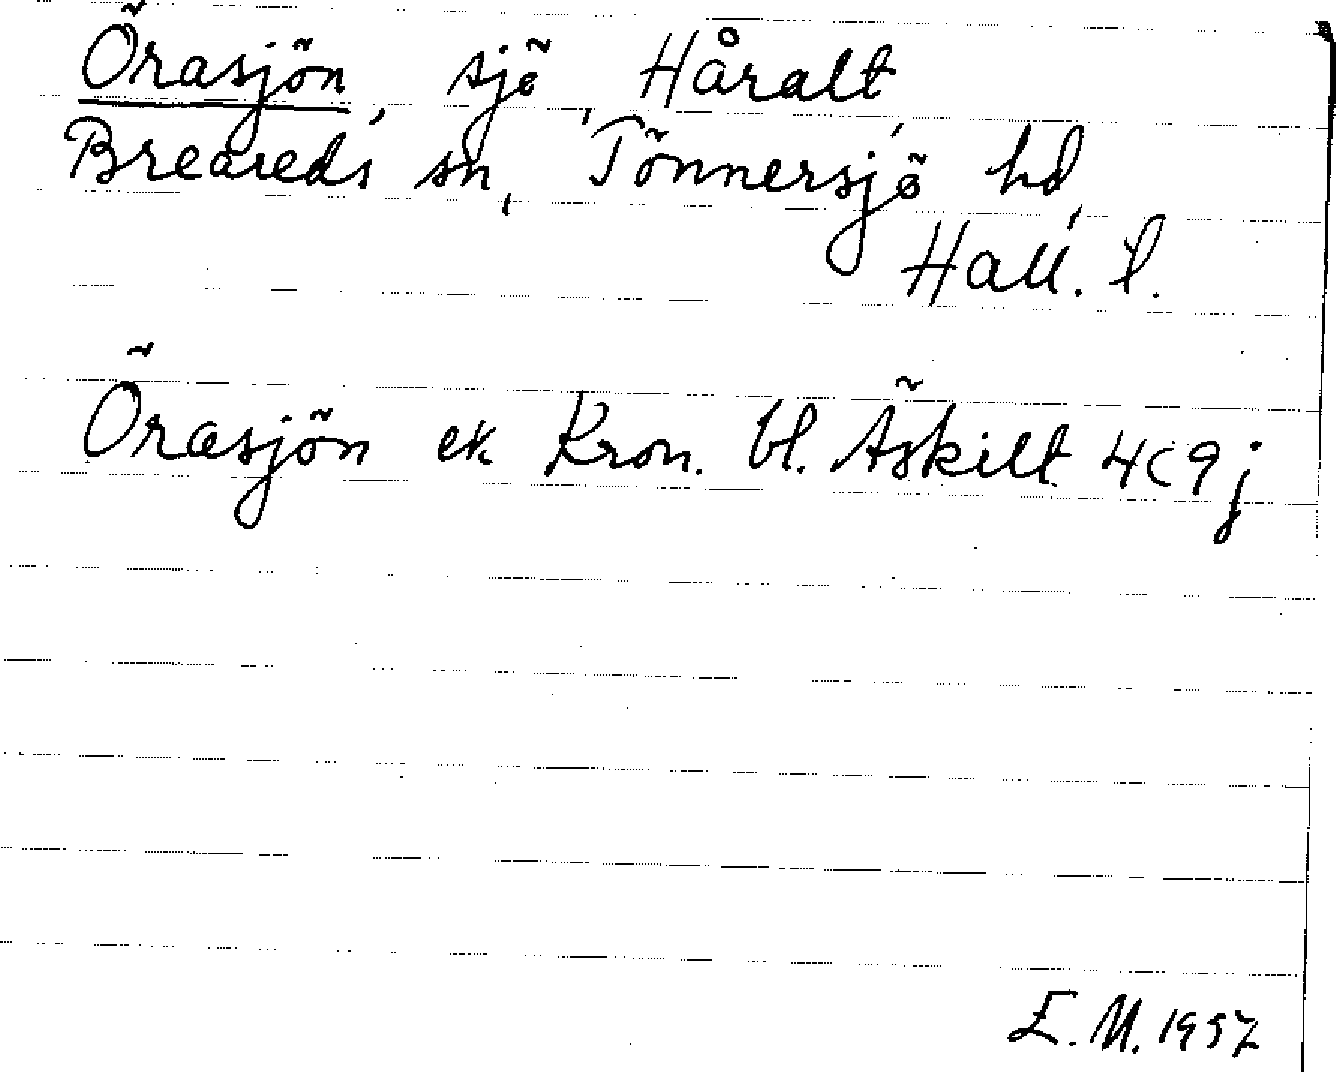 Örasjön, sjö, Håralt,
Breareds sn, Tönnersjö hd,
Hall. l.
Örasjön ek Kron. bl. Äskilt 4C9j
E. M. 1957